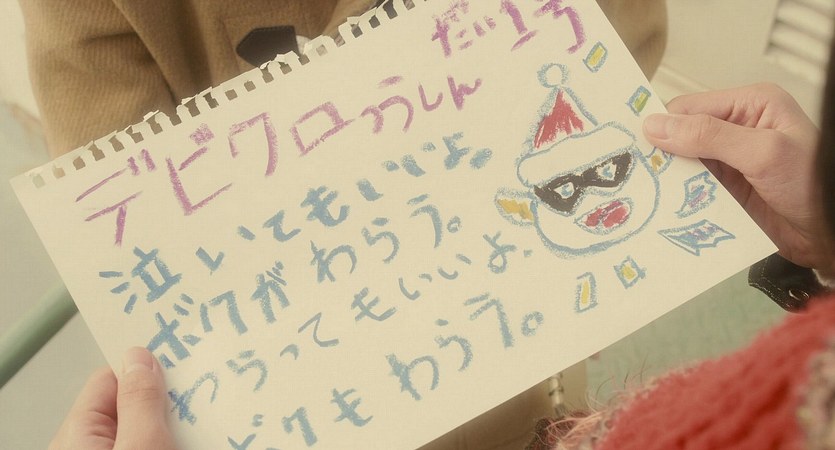 だい1号
デビクロつうしん
泣いてもいいよ。
ボクがわらう。
わらってもいいよ。
ボクもわらう。